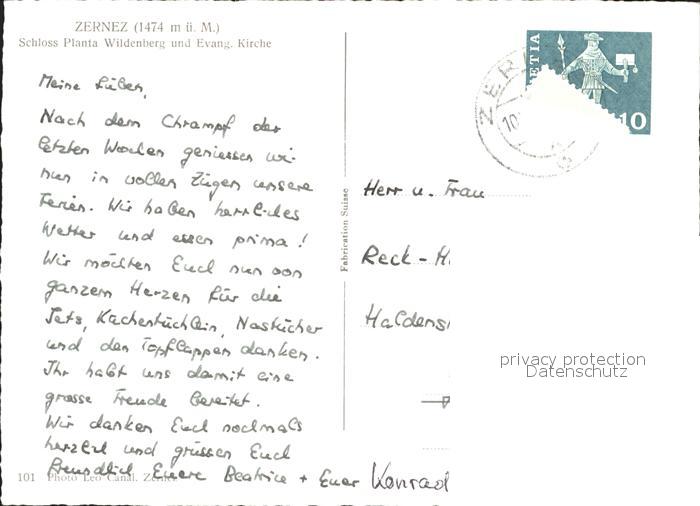 ZERNEZ (1474 m ü. M.)
Schloss Planta Wildenberg und Evang. Kirche
Meine Lieben,
Nach dem Chrampf der
letzten Wochen geniessen wir
nun in vollen Zügen unsere
Ferien. Wir haben herrliches
Wetter und essen prima!
Wir möchten Euch nun von
ganzem Herzen für die
Sets, Kachentüchlein, Nastücher
und den Topflappen danken.
Ihr habt uns damit eine
grosse Freude bereitet.
Wir danken Euch nochmals
herzlich und grüssen Euch
freundlich Euere Beatrice + Euer Konrad
101 Photo Leo Canal. Zernez
Fabrication Suisse
HELVETIA
10
ZER
10
Herr u. Frau
Reck - H
Haldens
privacy protection
Datenschutz